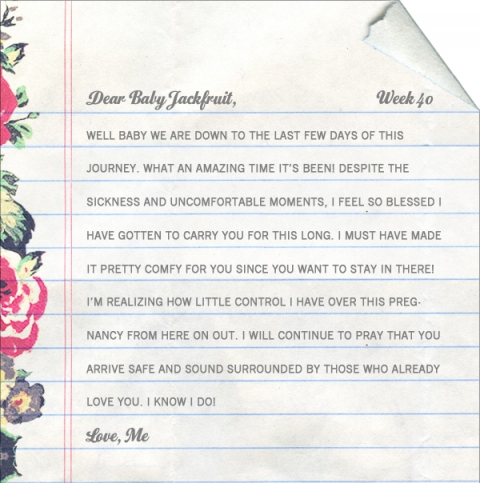 Dear Baby Jackfruit, Week 40
WELL BABY WE ARE DOWN TO THE LAST FEW DAYS OF THIS
JOURNEY. WHAT AN AMAZING TIME IT'S BEEN! DESPITE THE
SICKNESS AND UNCOMFORTABLE MOMENTS, I FEEL SO BLESSED I
HAVE GOTTEN TO CARRY YOU FOR THIS LONG. I MUST HAVE MADE
IT PRETTY COMFY FOR YOU SINCE YOU WANT TO STAY IN THERE!
I'M REALIZING HOW LITTLE CONTROL I HAVE OVER THIS PREG-
NANCY FROM HERE ON OUT. I WILL CONTINUE TO PRAY THAT YOU
ARRIVE SAFE AND SOUND SURROUNDED BY THOSE WHO ALREADY
LOVE YOU. I KNOW I DO!
Love, Me